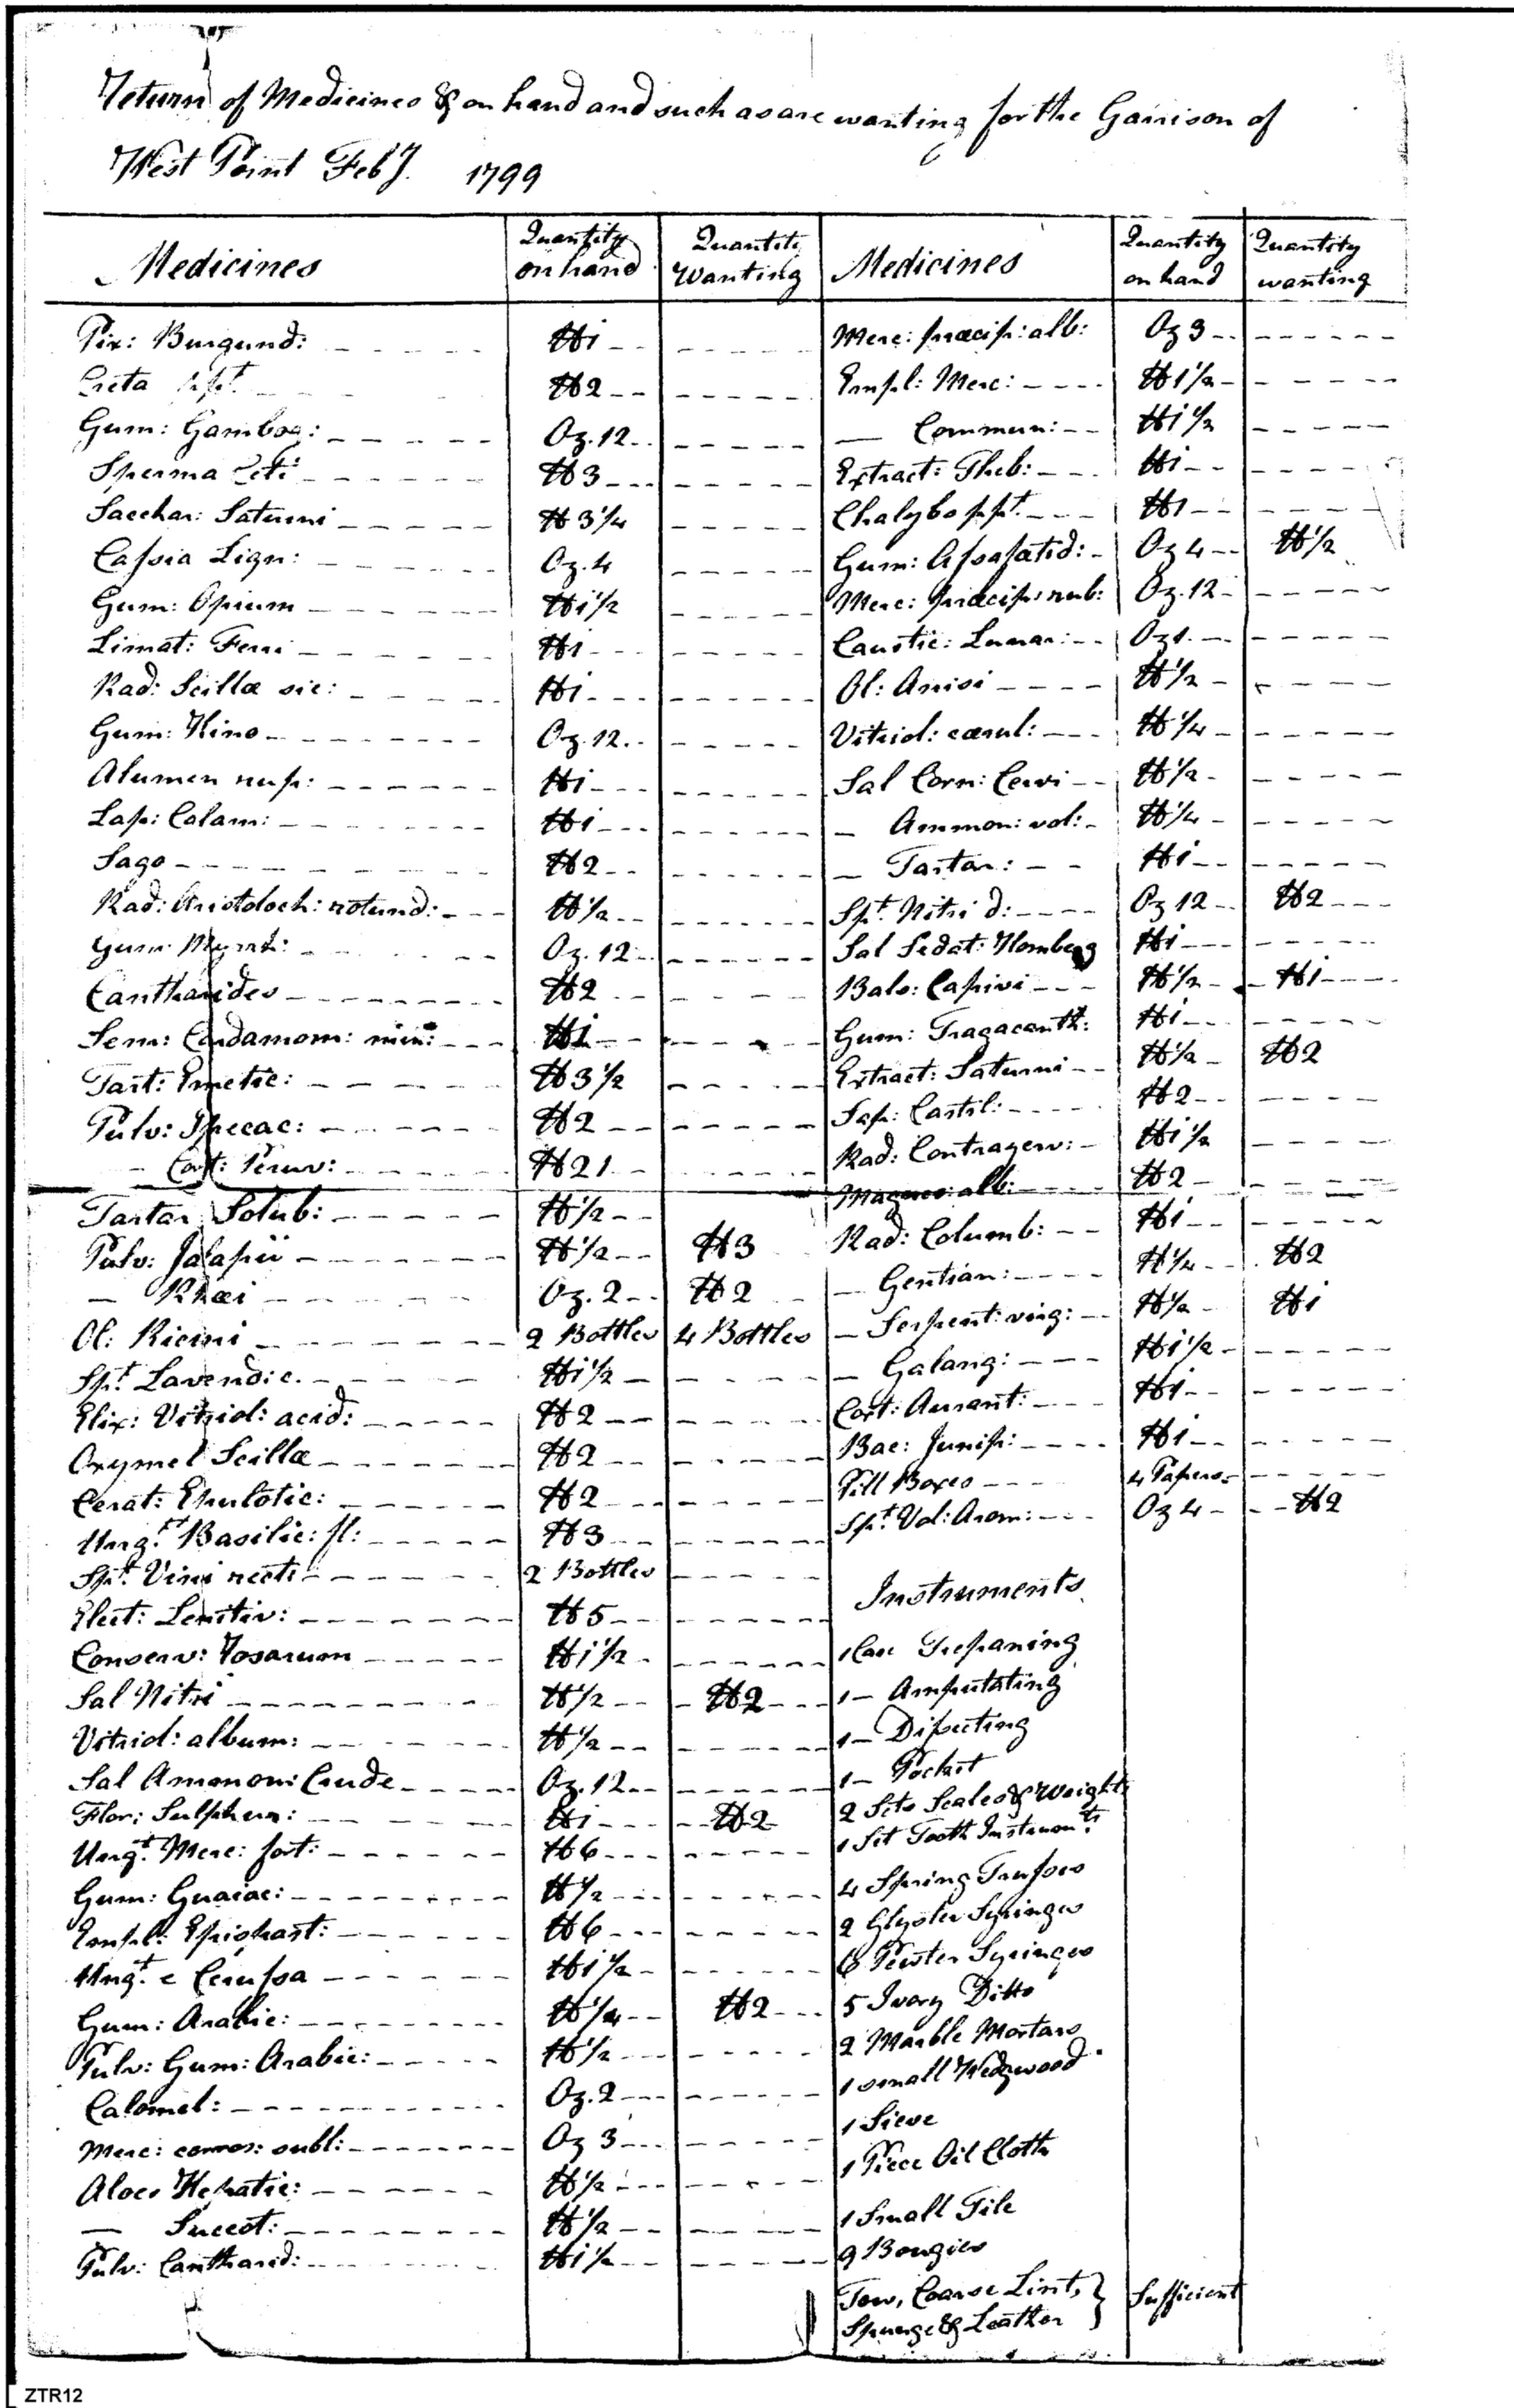 Return of Medicines & on hand and such as are wanting for the Garrison of
West Point Feby. 1799
Medicines Quantity on hand Quantity Wanting
Pix: Burgund: ℔i
Creta ppt. ℔2
Gum: Gambog: Oz. 12
Sperma Ceti ℔3
Sacchar: Saturni ℔3 1/4
Cassia Lign: Oz. 4
Gum: Opium ℔i 1/2
Limat: Ferri ℔i
Rad: Scillæ sic: ℔i
Gum: Kino Oz. 12
Alumen rup: ℔i
Lap: Calam: ℔i
Sago ℔2
Rad: Aristoloch: rotund: ℔1/2
Gum Myrrh: Oz. 12
Cantharides ℔2
Sem: Cardamom: min: ℔i
Tart: Emetic: ℔3 1/2
Pulv: Ipecac: ℔2
— Cort: Peruv: ℔21
Tartar Solub: ℔1/2
Pulv: Jalapii ℔1/2 ℔3
— Rhæi Oz. 2 ℔2
Ol: Ricini 2 Bottles 4 Bottles
Spt. Lavend: c. ℔i 1/2
Elix: Vitriol: acid: ℔2
Oxymel Scillæ ℔2
Cerat: Epulotic: ℔2
Ungt. Basilic: fl: ℔3
Spt. Vini recti 2 Bottles
Elect: Lenitiv: ℔5
Conserv: Rosarum ℔i 1/2
Sal Nitri ℔1/2 ℔2
Vitriol: album: ℔1/2
Sal Ammon: Crude Oz. 12
Flor: Sulphur: ℔i ℔2
Ungt. Merc: fort: ℔6
Gum: Guaiac: ℔1/2
Empl: Epispast: ℔6
Ungt. e Cerussa ℔i 1/2
Gum: Arabic: ℔1/4 ℔2
Pulv: Gum: Arabic: ℔1/2
Calomel: Oz. 2
Merc: corros: subl: Oz 3
Aloes Hepatic: ℔1/2
— Succot: ℔1/2
Pulv: Cantharid: ℔i 1/2
Medicines Quantity on hand Quantity wanting
Merc: præcip: alb: Oz 3
Empl: Merc: ℔1 1/2
— Commun: ℔i 1/2
Extract: Theb: ℔i
Chalybs ppt. ℔1
Gum: Assafœtid: Oz 4 ℔1/2
Merc: præcip: rub: Oz. 12
Caustic: Lunar: Oz 1.
Ol: Anisi ℔1/2
Vitriol: cærul: ℔1/4
Sal Corn: Cervi ℔1/2
— Ammon: vol: ℔1/4
— Tartar: ℔i
Spt. Nitri d: Oz 12 ℔2
Sal Sedat: Homberg ℔i
Bals: Capivi ℔1/2 ℔i
Gum: Tragacanth: ℔i
Extract: Saturni ℔1/2 ℔2
Sap: Castil: ℔2
Rad: Contrayerv: ℔i 1/2
Magnes: alb: ℔2
Rad: Columb: ℔i
— Gentian: ℔1/4 ℔2
— Serpent: virg: ℔1/2 ℔i
— Galang: ℔i 1/2
Cort: Aurant: ℔i
Bac: Junip: ℔i
Pill Boxes 4 Papers
Spt. Vol: Arom: Oz 4 ℔2
Instruments
1 Case Trepaning
1 — Amputating
1 — Dissecting
1 — Pocket
2 Sets Scales & Weights
1 Set Tooth Instrumts.
4 Spring Trusses
2 Glyster Syringes
6 Pewter Syringes
5 Ivory Ditto
2 Marble Mortars
1 small Wedgwood
1 Sieve
1 Piece Oil Cloth
1 Small Tile
9 Bougies
Tow, Coarse Lint, } Sufficient
Spunge & Leather
ZTR12